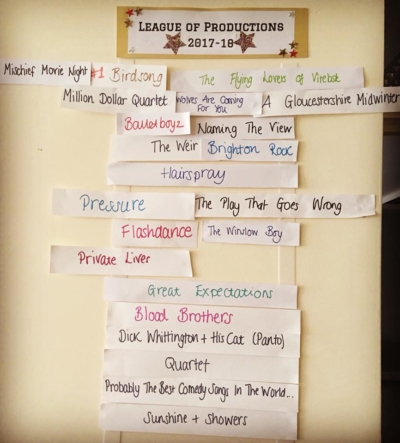 LEAGUE OF PRODUCTIONS
2017-18
Mischief Movie Night #1 Birdsong The Flying Lovers of Vitebsk
Million Dollar Quartet Wolves Are Coming For You A Gloucestershire Midwinter
Balletboyz Naming The View
The Weir Brighton Rock
Hairspray
Pressure The Play That Goes Wrong
Flashdance The Winslow Boy
Private Lives
Great Expectations
Blood Brothers
Dick Whittington + His Cat (Panto)
Quartet
Probably The Best Comedy Songs In The World...
Sunshine + Showers